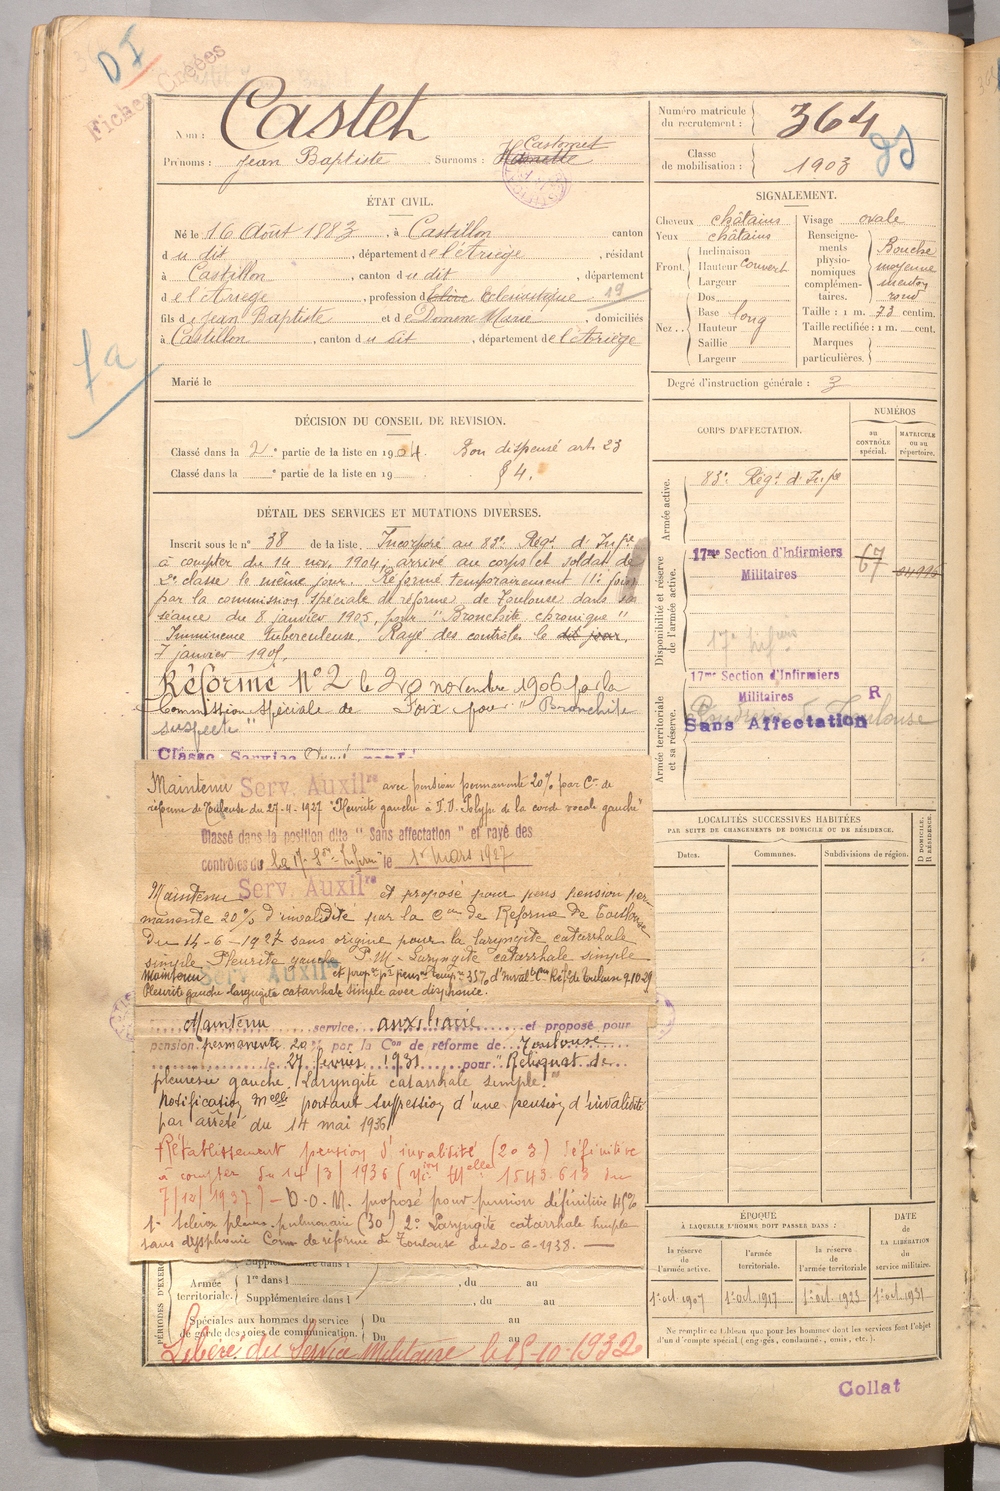 DI
Fiches Créées
Nom : Casteh
Prénoms : Jean Baptiste Surnoms : Castornet
Numéro matricule du recrutement : 364
Classe de mobilisation : 1903
ÉTAT CIVIL.
Né le 16 Août 1883, à Castillon canton
du dit, département de l'Ariège, résidant
à Castillon, canton du dit, département
de l'Ariège, profession d Elève Eclésiastique 19
fils de Jean Baptiste et de Domenc Marie, domiciliés
à Castillon, canton du dit, département de l'Ariège
Marié le
fa
SIGNALEMENT.
Cheveux châtains
Yeux châtains
Front. Inclinaison
Hauteur couvert
Largeur
Nez. Dos
Base long
Hauteur
Saillie
Largeur
Visage ovale
Renseignements physionomiques complémentaires. Bouche moyenne menton rond
Taille : 1 m. 73 centim.
Taille rectifiée : 1 m. cent.
Marques particulières.
Degré d'instruction générale : 3
DÉCISION DU CONSEIL DE REVISION.
Classé dans la 2e partie de la liste en 1904. Bon dispensé art. 23
Classé dans la e partie de la liste en 19 § 4.
DÉTAIL DES SERVICES ET MUTATIONS DIVERSES.
Inscrit sous le n° 38 de la liste. Incorporé au 83e Régt d'Infie
à compter du 14 nov. 1904, arrivé au corps et soldat de
2e classe le même jour. Réformé temporairement (1e fois)
par la commission spéciale de réforme de Toulouse dans sa
séance du 8 janvier 1905, pour "Bronchite chronique"
Imminence tuberculeuse. Rayé des contrôles le dit jour.
7 janvier 1905.
Réformé N°2 le 20 novembre 1906 par la
Commission spéciale de Foix pour "Bronchite
suspecte"
Classé Service
Maintenu Serv. Auxilre avec pension permanente 20% par Cn de
réforme de Toulouse du 27-4-1927 "Pleurite gauche à T.V. Polype de la corde vocale gauche"
Classé dans la position dite "Sans affectation" et rayé des
contrôles du la 17e Son Infirm le 1er Mars 1927
Maintenu Serv. Auxilre et proposé pour pens pension per
manente 20% d'invalidité par la Con de Réforme de Toulouse
du 14-6-1927 sans origine pour la laryngite catarrhale
simple Pleurite gauche P.M. Laryngite catarrhale simple
Maintenu Serv Auxilre et propé pr pens temp re 35% d'inval Con Réf de Toulouse 9.10.29
Pleurite gauche laryngite catarrhale simple avec dysphonie.
Maintenu service auxiliaire et proposé pour
pension permanente 20% par la Con de réforme de Toulouse
le 27 février 1931 pour "Reliquat de
pleurésie gauche. Laryngite catarrhale simple."
Notification Melle portant suppression d'une pension d'invalidité
par arrêté du 14 mai 1936
Rétablissement pension d'invalidité (20%) définitive
à compter du 14/3/1936 (Non Melle 1543.613 du
7/12/1937) - D.O.M. proposé pour pension définitive 45%
1° Sclérose pleuro pulmonaire (30) 2° Laryngite catarrhale simple
sans dysphonie Comn de réforme de Toulouse du 20-6-1938.
CORPS D'AFFECTATION.
NUMÉROS
au CONTRÔLE spécial.
MATRICULE ou au répertoire.
Armée active.
83e Régt d'Infie
Disponibilité et réserve de l'armée active.
17me Section d'Infirmiers
Militaires
67
Armée territoriale et sa réserve.
17me Section d'Infirmiers
Militaires R
Poudrerie de Toulouse
Sans Affectation
LOCALITÉS SUCCESSIVES HABITÉES
PAR SUITE DE CHANGEMENTS DE DOMICILE OU DE RÉSIDENCE.
Dates.
Communes.
Subdivisions de région.
D DOMICILE.
R RÉSIDENCE.
PÉRIODES D'EXER
Supplémentaire dans l
Armée territoriale. 1re dans l , du au
Supplémentaire dans l , du au
Spéciales aux hommes du service de garde des voies de communication. Du au
Du au
Libéré du Service Militaire le 15-10-1932
ÉPOQUE
À LAQUELLE L'HOMME DOIT PASSER DANS :
la réserve de l'armée active.
l'armée territoriale.
la réserve de l'armée territoriale
DATE de LA LIBÉRATION du service militaire.
1er oct. 1907
1er oct. 1917
1er oct. 1923
1er oct. 1931
Ne remplir ce tableau que pour les hommes dont les services font l'objet
d'un d'compte spécial (engagés, condamné, omis, etc.).
Collat